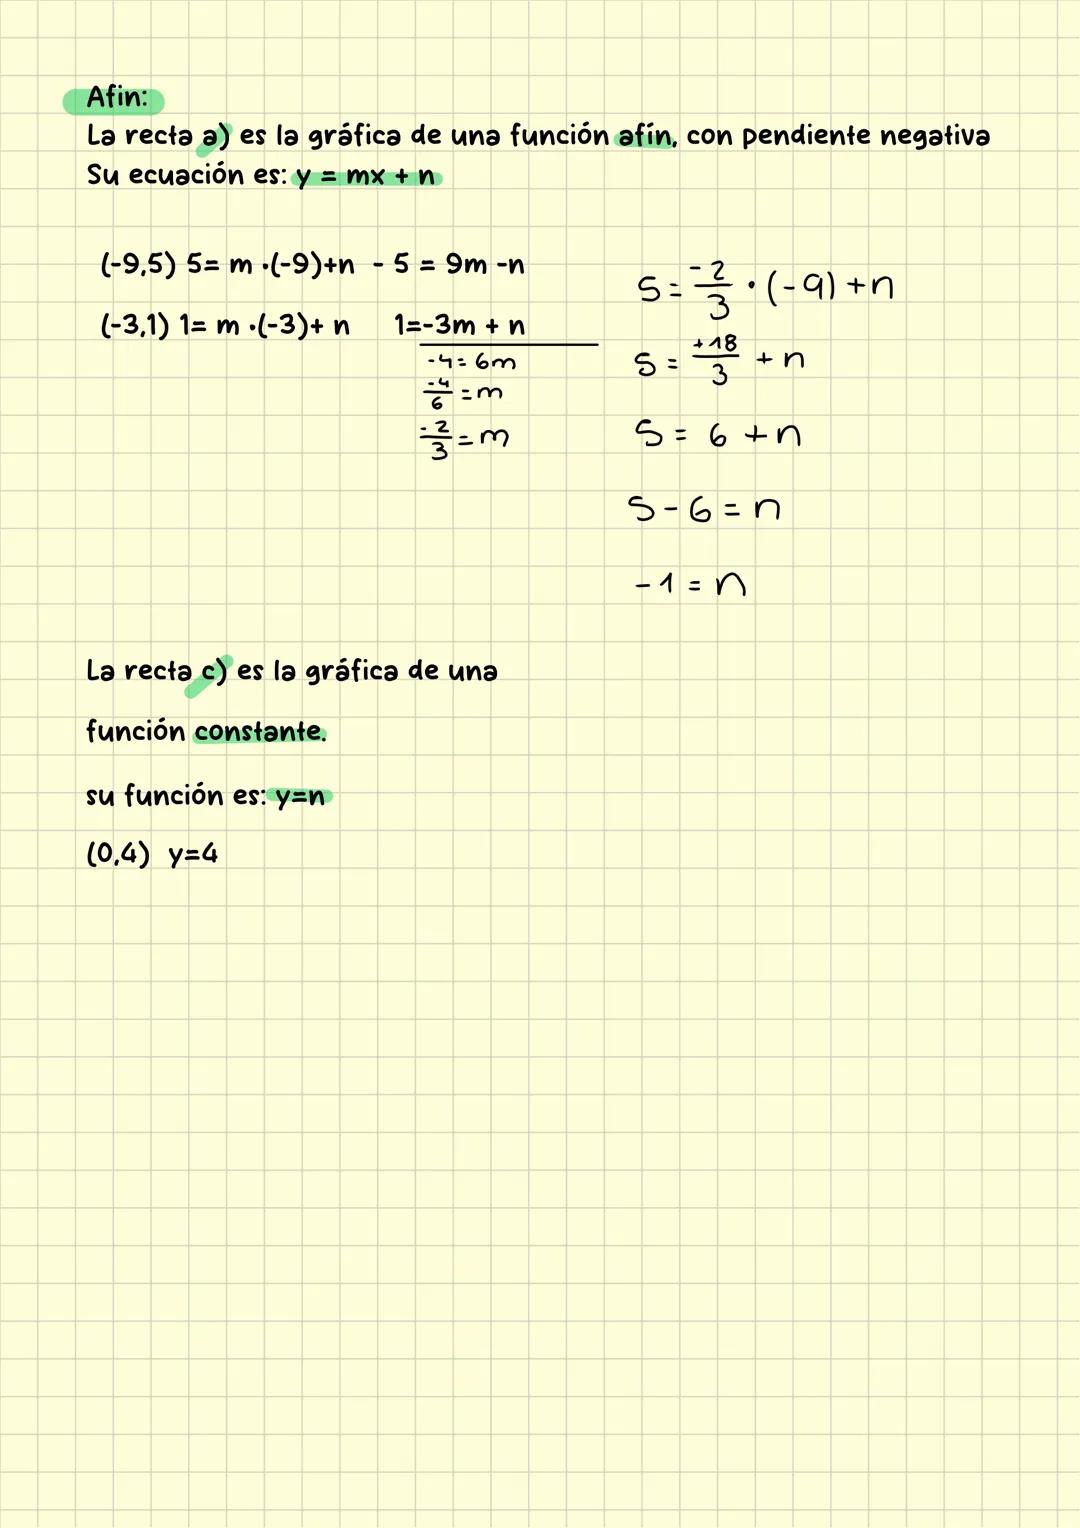 Afin:
La recta a) es la gráfica de una función afín, con pendiente negativa
Su ecuación es: y = mx + n
(-9,5) 5= m ·(-9)+n - 5 = 9m -n
(-3,1) 1= m ·(-3)+ n 1=-3m + n
-4 = 6m
-4/6 = m
-2/3 = m
5 = -2/3 · (-9) + n
5 = +18/3 + n
5 = 6 + n
5 - 6 = n
-1 = n
La recta c) es la gráfica de una
función constante.
su función es: y=n
(0,4) y=4